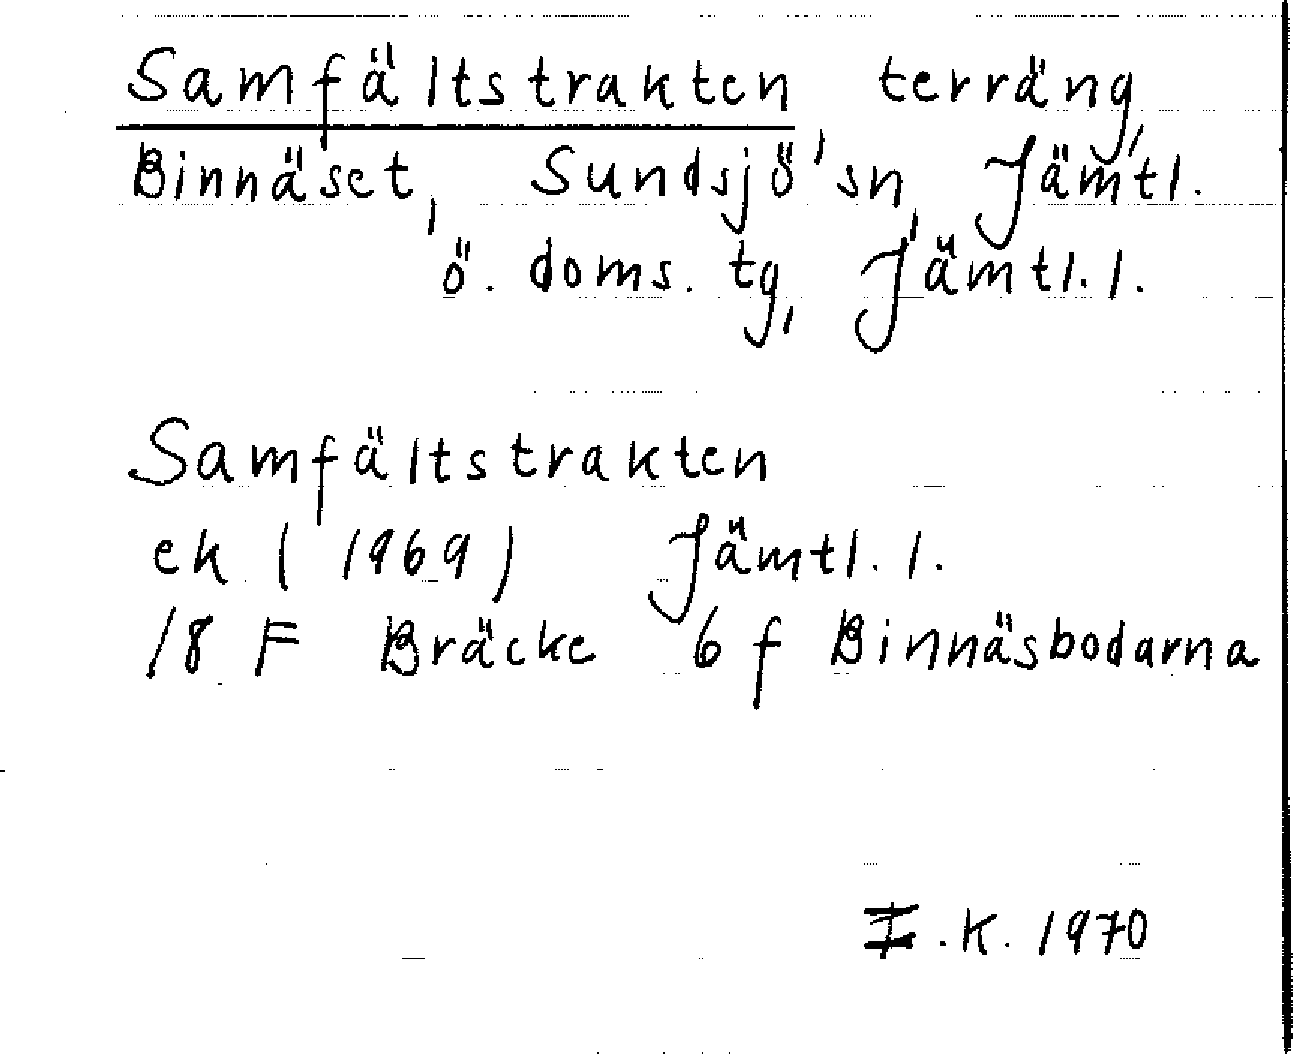 Samfältstrakten terräng,
Binnäset, Sundsjö' sn, Jämtl.
ö. doms. tg, Jämtl. l.
Samfältstrakten
ek (1969) Jämtl. l.
18 F Bräcke 6 f Binnäsbodarna
I. K. 1970